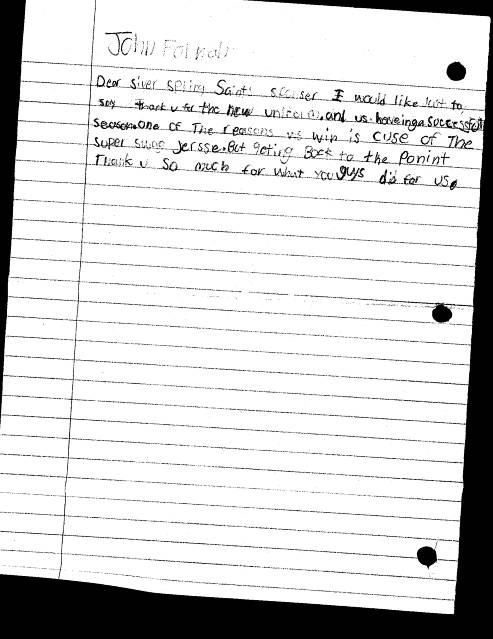 John
Dear silver spring Saints I would like Just to
say thank u for the new and us haveing a successful
season.One of The reasons us win is cuse of The
super swag Jersse.But geting Back to the Ponint
Thank u so much for what you guys did for us.